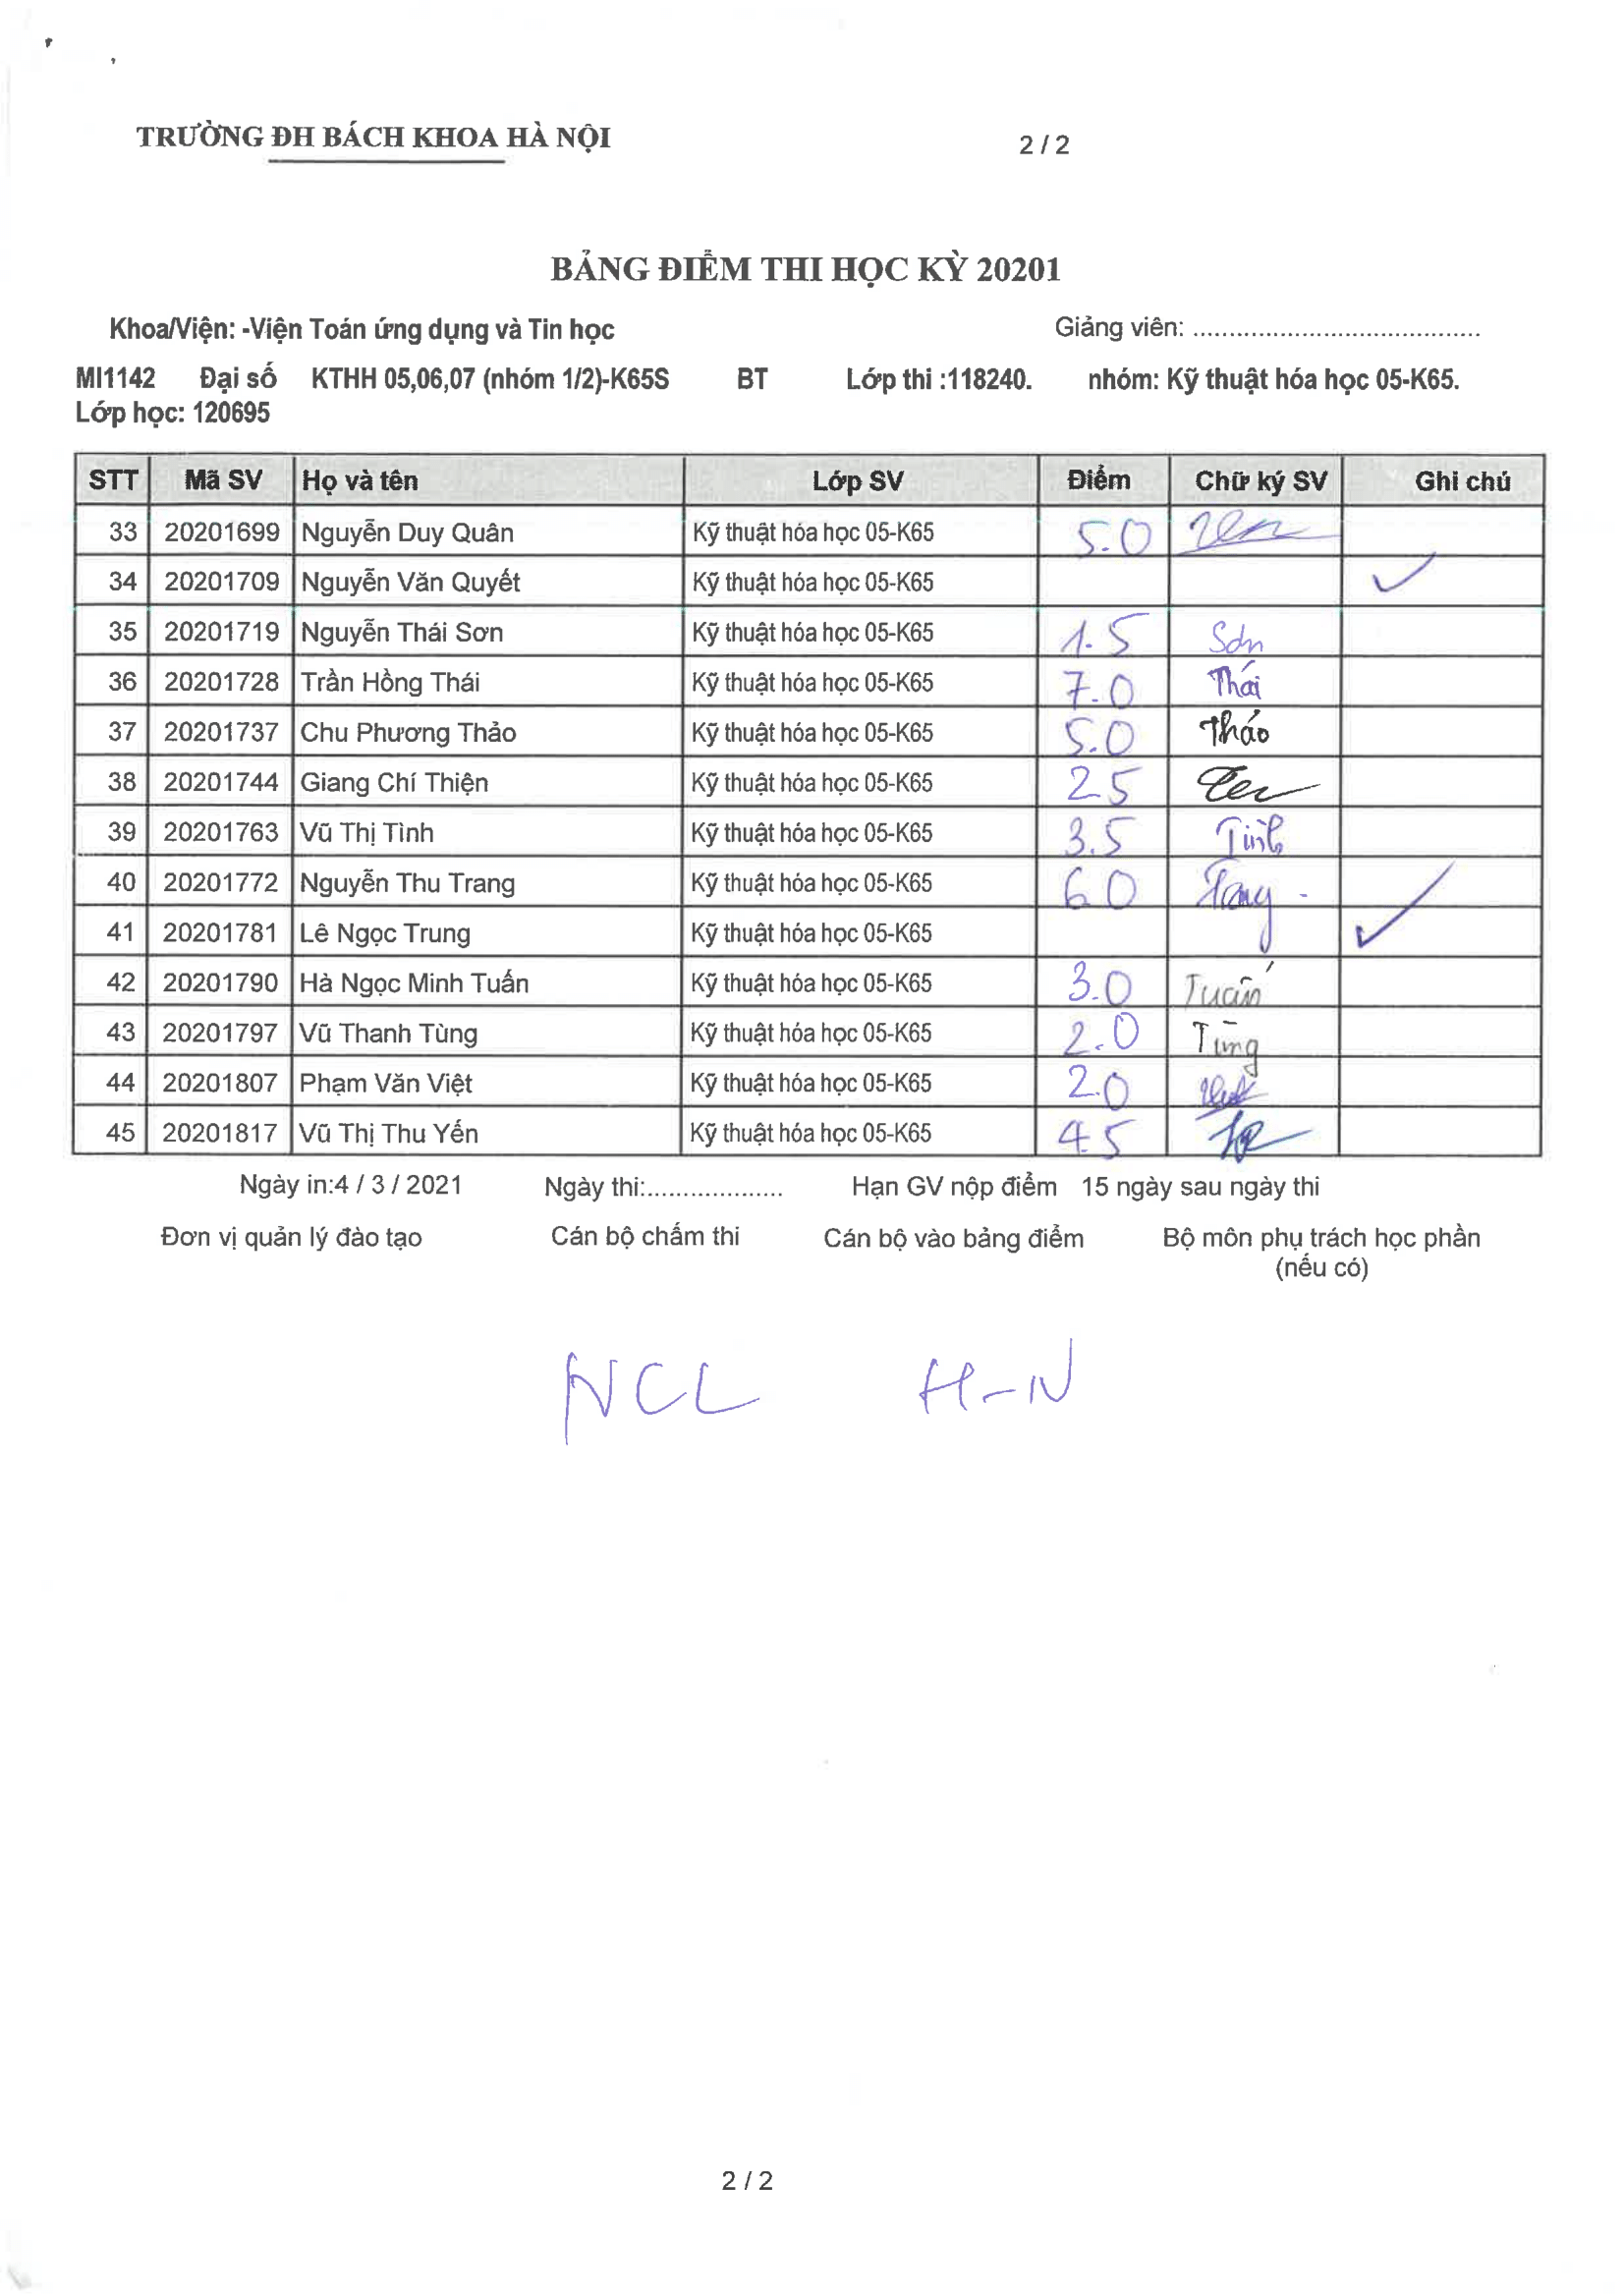 TRƯỜNG ĐH BÁCH KHOA HÀ NỘI 2 / 2
BẢNG ĐIỂM THI HỌC KỲ 20201
Khoa/Viện: -Viện Toán ứng dụng và Tin học Giảng viên: ......................................
MI1142 Đại số KTHH 05,06,07 (nhóm 1/2)-K65S BT Lớp thi :118240. nhóm: Kỹ thuật hóa học 05-K65.
Lớp học: 120695
STT Mã SV Họ và tên Lớp SV Điểm Chữ ký SV Ghi chú
33 20201699 Nguyễn Duy Quân Kỹ thuật hóa học 05-K65 5.0
34 20201709 Nguyễn Văn Quyết Kỹ thuật hóa học 05-K65 ✓
35 20201719 Nguyễn Thái Sơn Kỹ thuật hóa học 05-K65 1.5 Sơn
36 20201728 Trần Hồng Thái Kỹ thuật hóa học 05-K65 7.0 Thái
37 20201737 Chu Phương Thảo Kỹ thuật hóa học 05-K65 5.0 Thảo
38 20201744 Giang Chí Thiện Kỹ thuật hóa học 05-K65 2.5
39 20201763 Vũ Thị Tình Kỹ thuật hóa học 05-K65 3.5 Tình
40 20201772 Nguyễn Thu Trang Kỹ thuật hóa học 05-K65 6.0 Trang
41 20201781 Lê Ngọc Trung Kỹ thuật hóa học 05-K65 ✓
42 20201790 Hà Ngọc Minh Tuấn Kỹ thuật hóa học 05-K65 3.0 Tuấn
43 20201797 Vũ Thanh Tùng Kỹ thuật hóa học 05-K65 2.0 Tùng
44 20201807 Phạm Văn Việt Kỹ thuật hóa học 05-K65 2.0
45 20201817 Vũ Thị Thu Yến Kỹ thuật hóa học 05-K65 4.5
Ngày in:4 / 3 / 2021 Ngày thi:................... Hạn GV nộp điểm 15 ngày sau ngày thi
Đơn vị quản lý đào tạo Cán bộ chấm thi Cán bộ vào bảng điểm Bộ môn phụ trách học phần
(nếu có)
NCL H-N
2 / 2